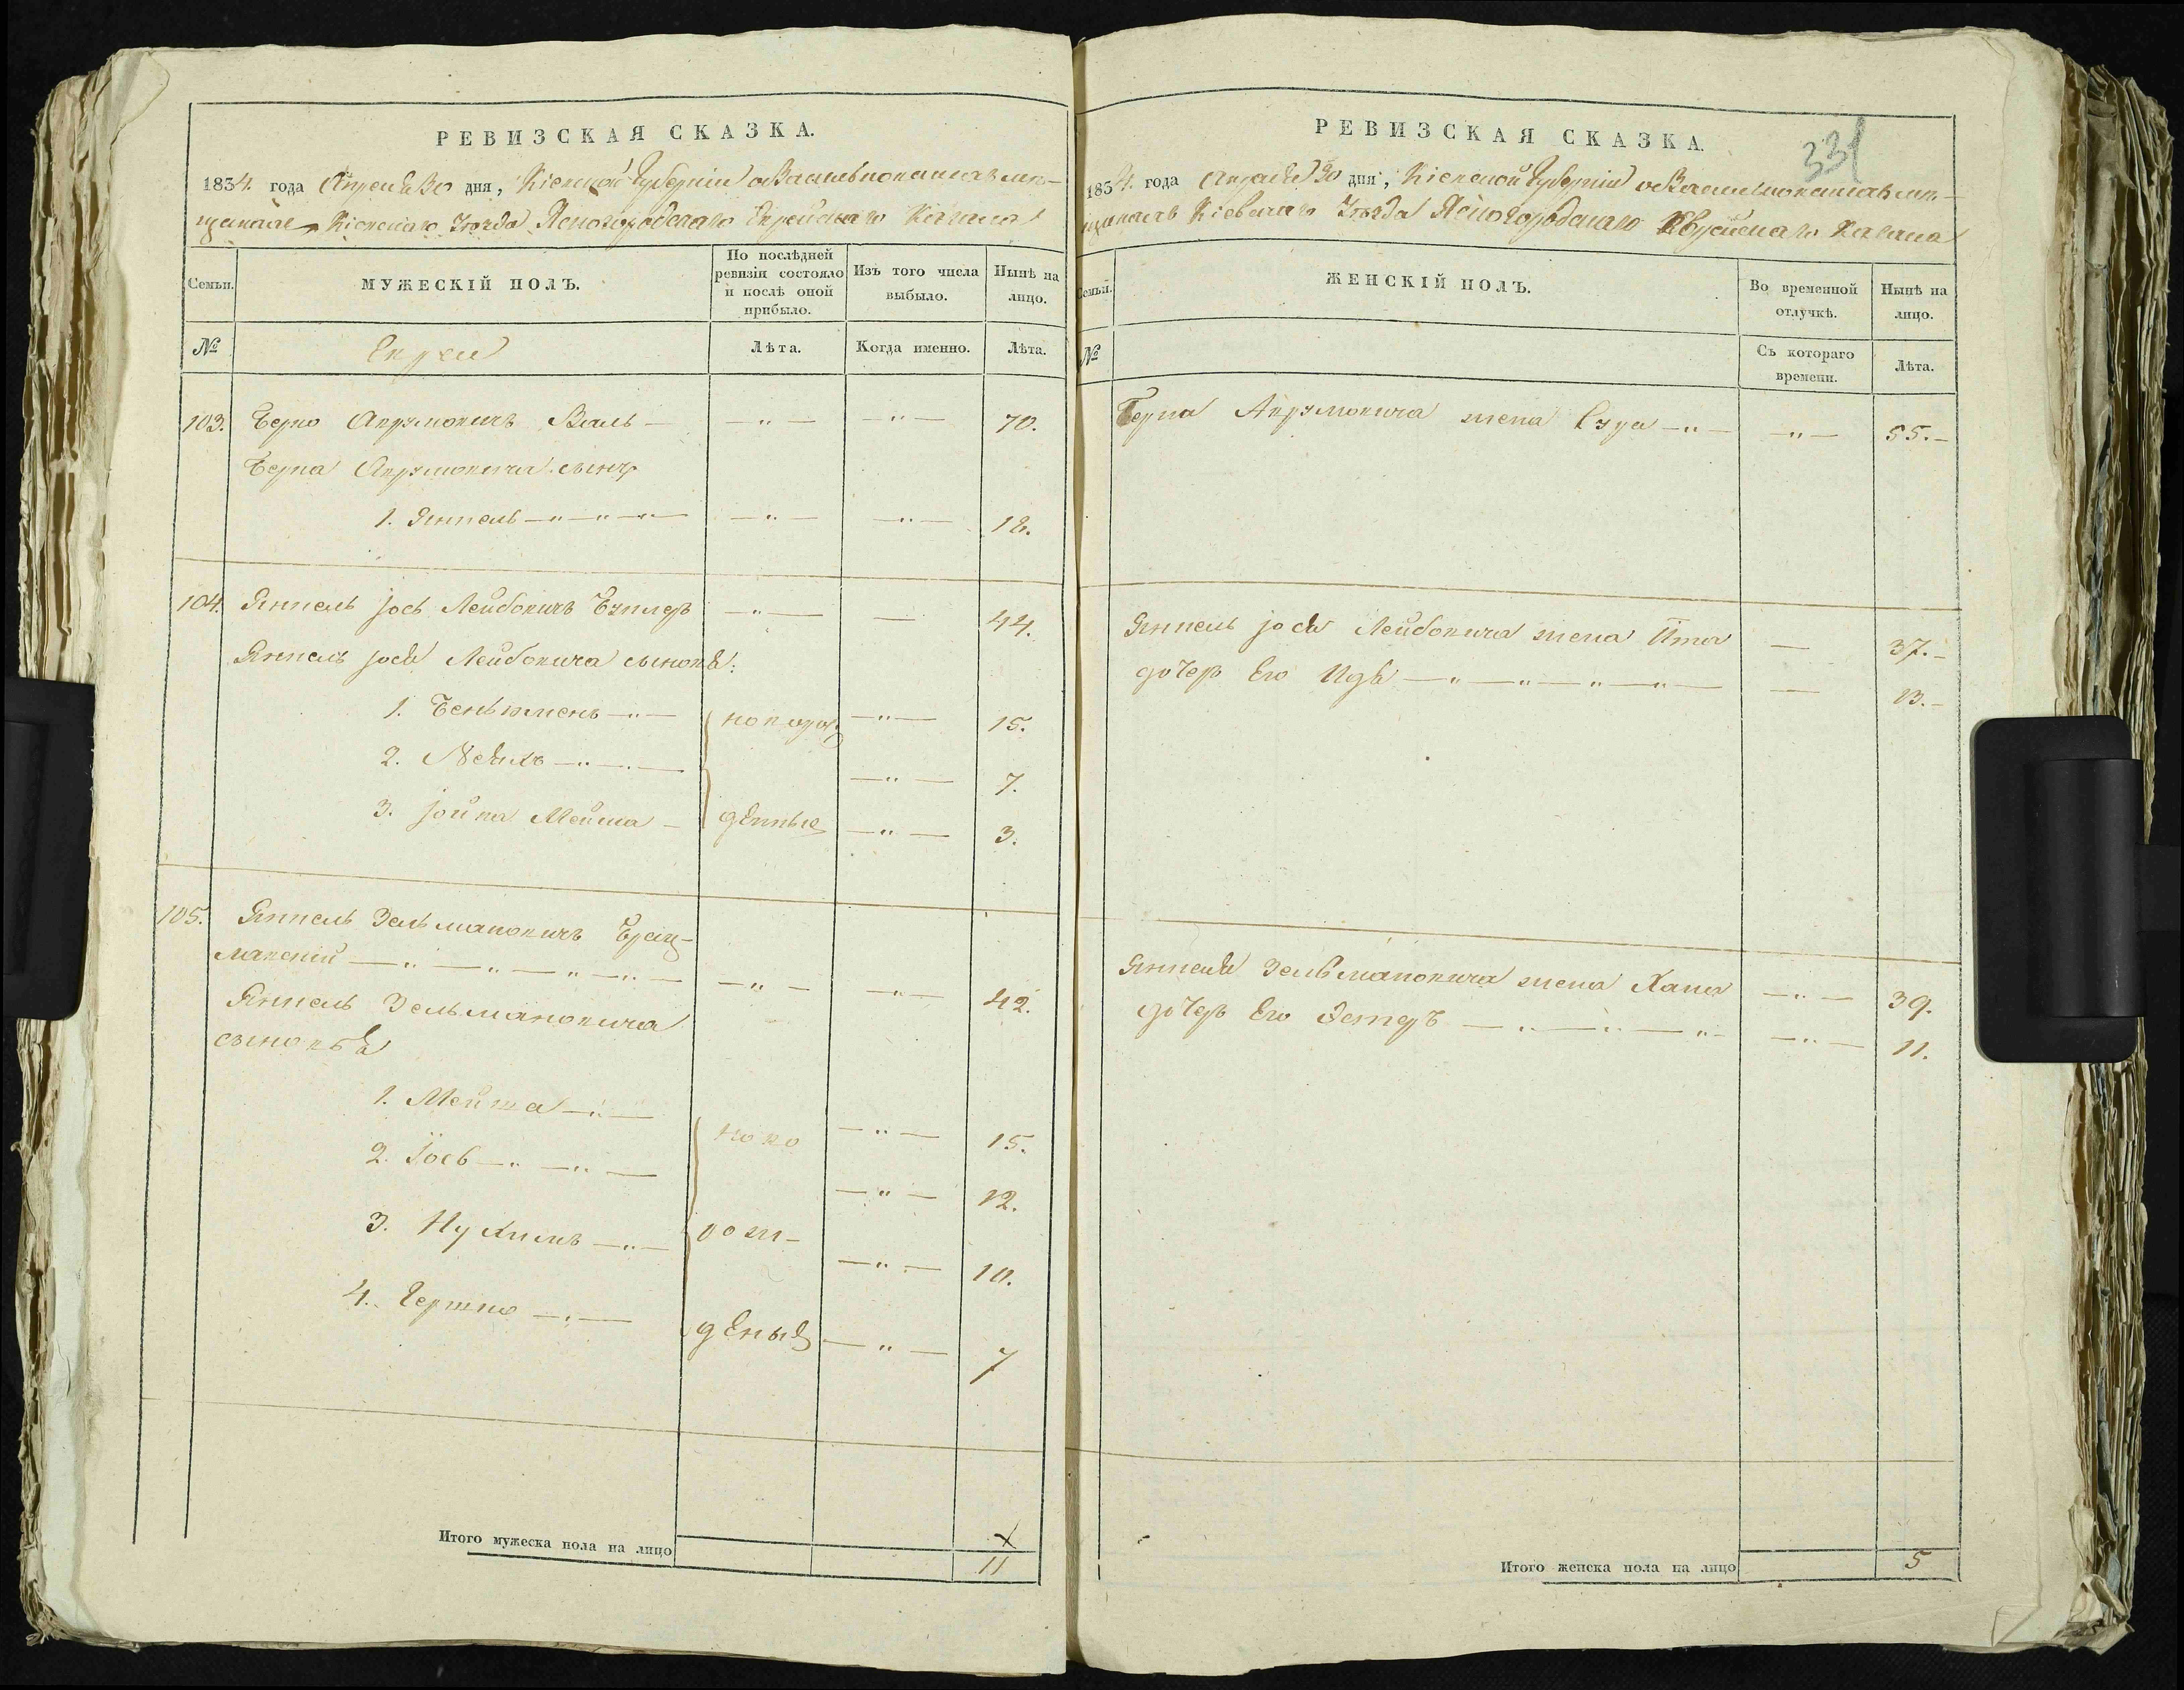 РЕВИЗСКАЯ СКАЗКА.
1834. года Апреля 30 дня, Кіевской Губерніи о Васильковскихъ мѣ-
щанахъ Кіевскаго Уѣзда Ясногородскаго Еврейскаго Кагала
Семьи.
МУЖЕСКІЙ ПОЛЪ.
По послѣдней ревизіи состояло и послѣ оной прибыло.
Изъ того числа выбыло.
Нынѣ на лицо.
№
Евреи
Лѣта.
Когда именно.
Лѣта.
103. Берко Аврумовичъ Валь — — „ — — „ — 70.
Берка Аврумовича сынъ
1. Янкель — „ — „ — „ — — „ — — „ — 18.
104. Янкель Іось Лейбовичъ — „ — — 44.
Янкель Іося Лейбовича сыновя:
1. Беньяменъ — „ — новорож — „ — 15.
2. — „ — — „ — 7.
3. Іойна Мейша — денные — „ — 3.
105. Янкель Зельмановичъ Брац-
лавскій — „ — „ — „ — „ — — „ — — „ — 42.
Янкель Зельмановича
сыновья
1. Мейша — „ — ново — „ — 15.
2. Іось — „ — „ — — „ — 12.
3. Нухимъ — „ — рож- — „ — 10.
4. Гершко — „ — деные — „ — 7
Итого мужеска пола на лицо 11
РЕВИЗСКАЯ СКАЗКА.
331
1834. года Апреля 30 дня, Кіевской Губерніи о Васильковскихъ мѣ-
щанахъ Кіевскаго Уѣзда Ясногородскаго Еврейскаго Кагала
Семьи.
ЖЕНСКІЙ ПОЛЪ.
Во временной отлучкѣ.
Нынѣ на лицо.
№
Съ котораго времени.
Лѣта.
Берка Аврумовича жена Сура — „ — — „ — 55.-
Янкель Іося Лейбовича жена Ита — 37.-
дочеръ Его — „ — „ — „ — „ — — 13.-
Янкеля Зельмановича жена Хана — „ — 39.
дочеръ Его Эстеръ — „ — „ — „ - — „ — 11.
Итого женска пола на лицо 5